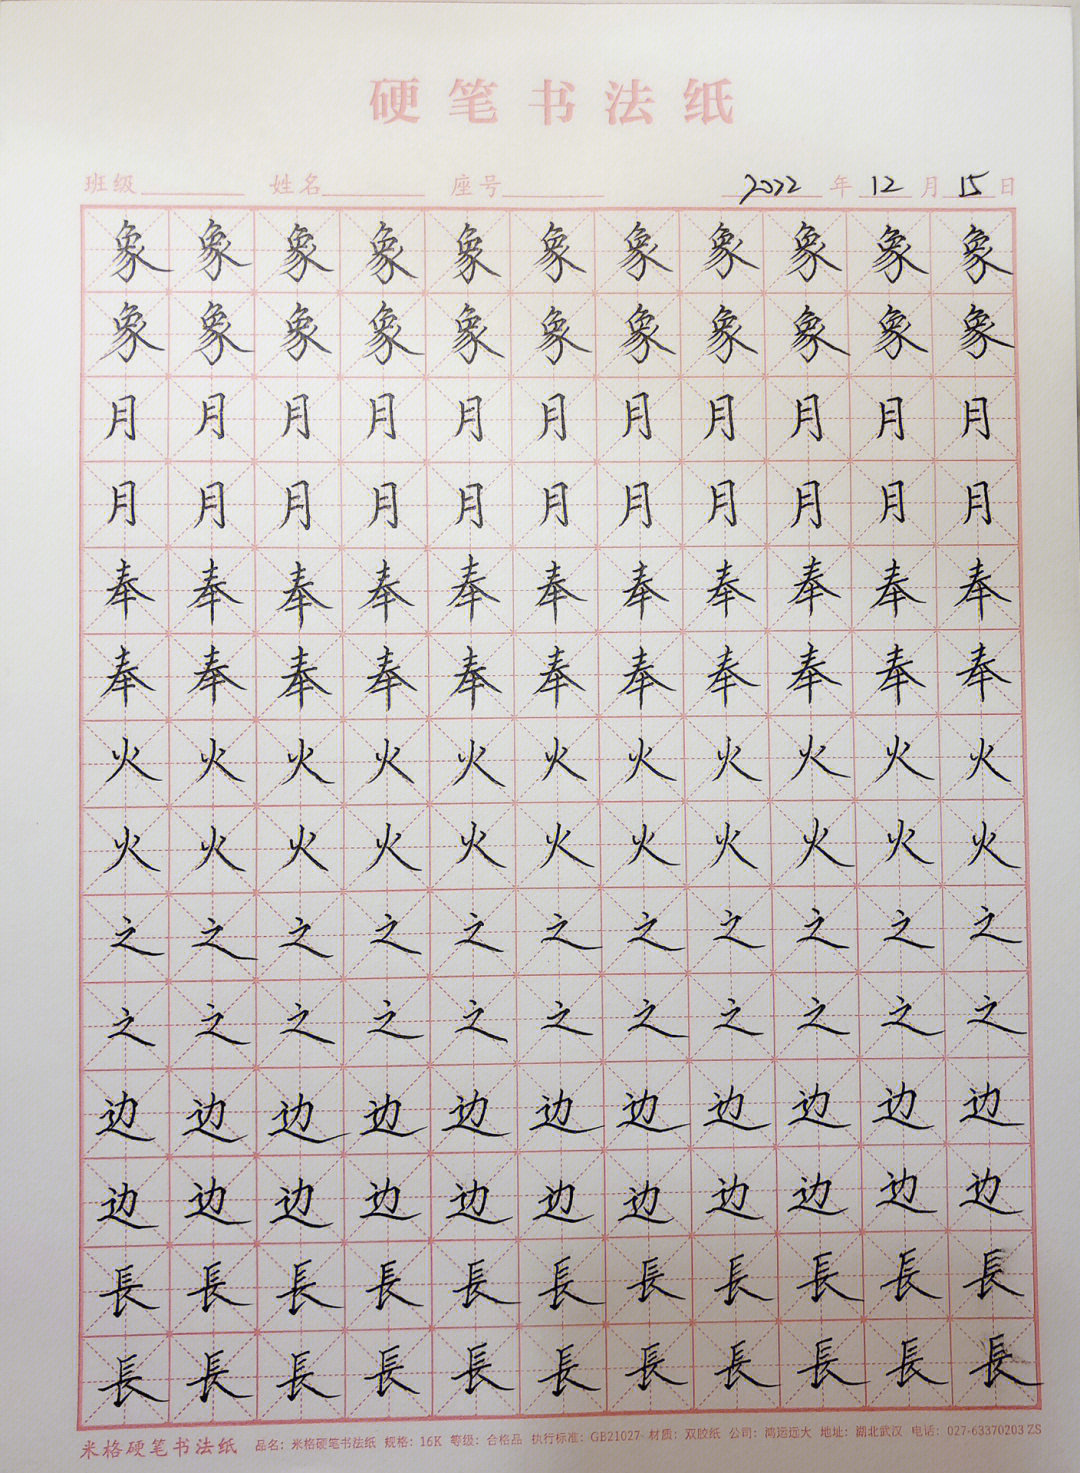 硬笔书法纸
班级 姓名 座号 2022 年 12 月 15 日
象 象 象 象 象 象 象 象 象 象 象
象 象 象 象 象 象 象 象 象 象 象
月 月 月 月 月 月 月 月 月 月 月
月 月 月 月 月 月 月 月 月 月 月
奉 奉 奉 奉 奉 奉 奉 奉 奉 奉 奉
奉 奉 奉 奉 奉 奉 奉 奉 奉 奉 奉
火 火 火 火 火 火 火 火 火 火 火
火 火 火 火 火 火 火 火 火 火 火
之 之 之 之 之 之 之 之 之 之 之
之 之 之 之 之 之 之 之 之 之 之
边 边 边 边 边 边 边 边 边 边 边
边 边 边 边 边 边 边 边 边 边 边
長 長 長 長 長 長 長 長 長 長 長
長 長 長 長 長 長 長 長 長 長 長
米格硬笔书法纸 品名：米格硬笔书法纸 规格：16K 等级：合格品 执行标准：GB21027 材质：双胶纸 公司：鸿运远大 地址：湖北武汉 电话：027-63370203 ZS